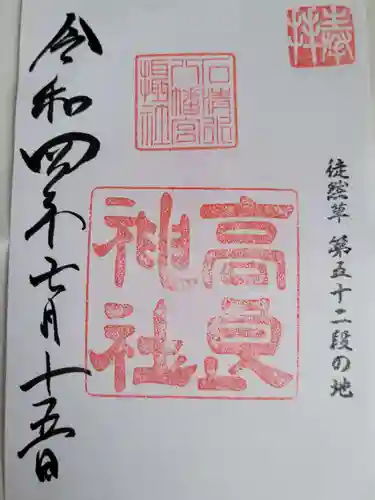 奉拝
徒然草 第五十二段の地
石清水
八幡宮
摂社
高良
神社
令和四年七月十五日